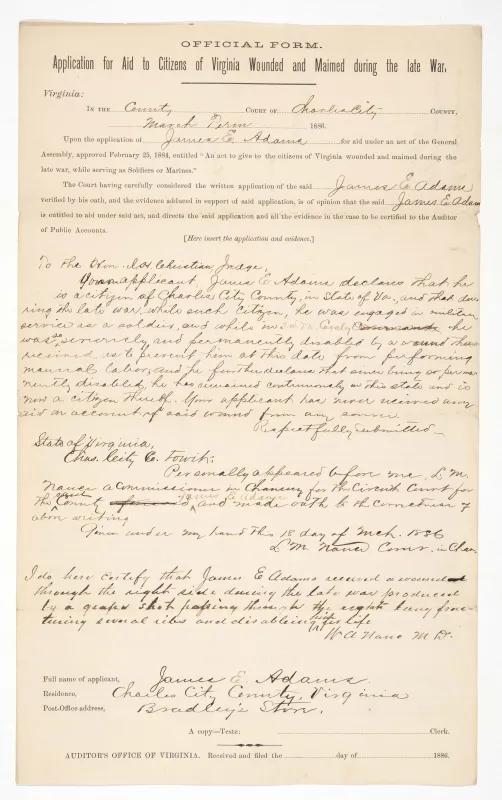 OFFICIAL FORM.
Application for Aid to Citizens of Virginia Wounded and Maimed during the late War.
Virginia:
IN THE County COURT OF Charles City COUNTY,
March Term 1886.
Upon the application of James E. Adams for aid under an act of the General
Assembly, approved February 25, 1884, entitled "An act to give to the citizens of Virginia wounded and maimed during the
late war, while serving as Soldiers or Marines."
The Court having carefully considered the written application of the said James E Adams
verified by oath, and the evidence adduced in support of said application, is of opinion that the said James E Adams
is entitled to aid under said act, and directs the said application and all the evidence in the case to be certified to the Auditor
of Public Accounts.
[Here insert the application and evidence.]
To the Hon. Christian Judge,
Your applicant, James E Adams declares that he
is a citizen of Charles City County, in State of Va, and that du-
ring the late war, while such citizen, he was engaged in military
service as a soldier, and while in he
was so severely and permanently disabled by a wound there
received as to prevent him at this date from performing
manual labor, and he further declares that since being so perma-
nently disabled, he has remained continuously in this state and is
now a citizen thereof. Your applicant has never received any
aid on account of said wound from any source.
Respectfully submitted
State of Virginia,
Chas. City Co. towit:
Personally appeared before me L. M.
Nance a Commissioner in Chancery for the Circuit Court for
the County James E Adams and made oath to the correctness of
above writing
Given under my hand this 18 day of Mch. 1886
L M Nance Comr. in Chan.
I do here certify that James E Adams received a wound
through the right side during the late war produced
by a grape shot passing through the right lung frac-
turing several ribs and disabling him for life
W A Nance M D.
Full name of applicant, James E. Adams.
Residence, Charles City County, Virginia
Post-Office address, Bradley's Store.
A copy—Teste: Clerk.
AUDITOR'S OFFICE OF VIRGINIA. Received and filed the day of 1886.